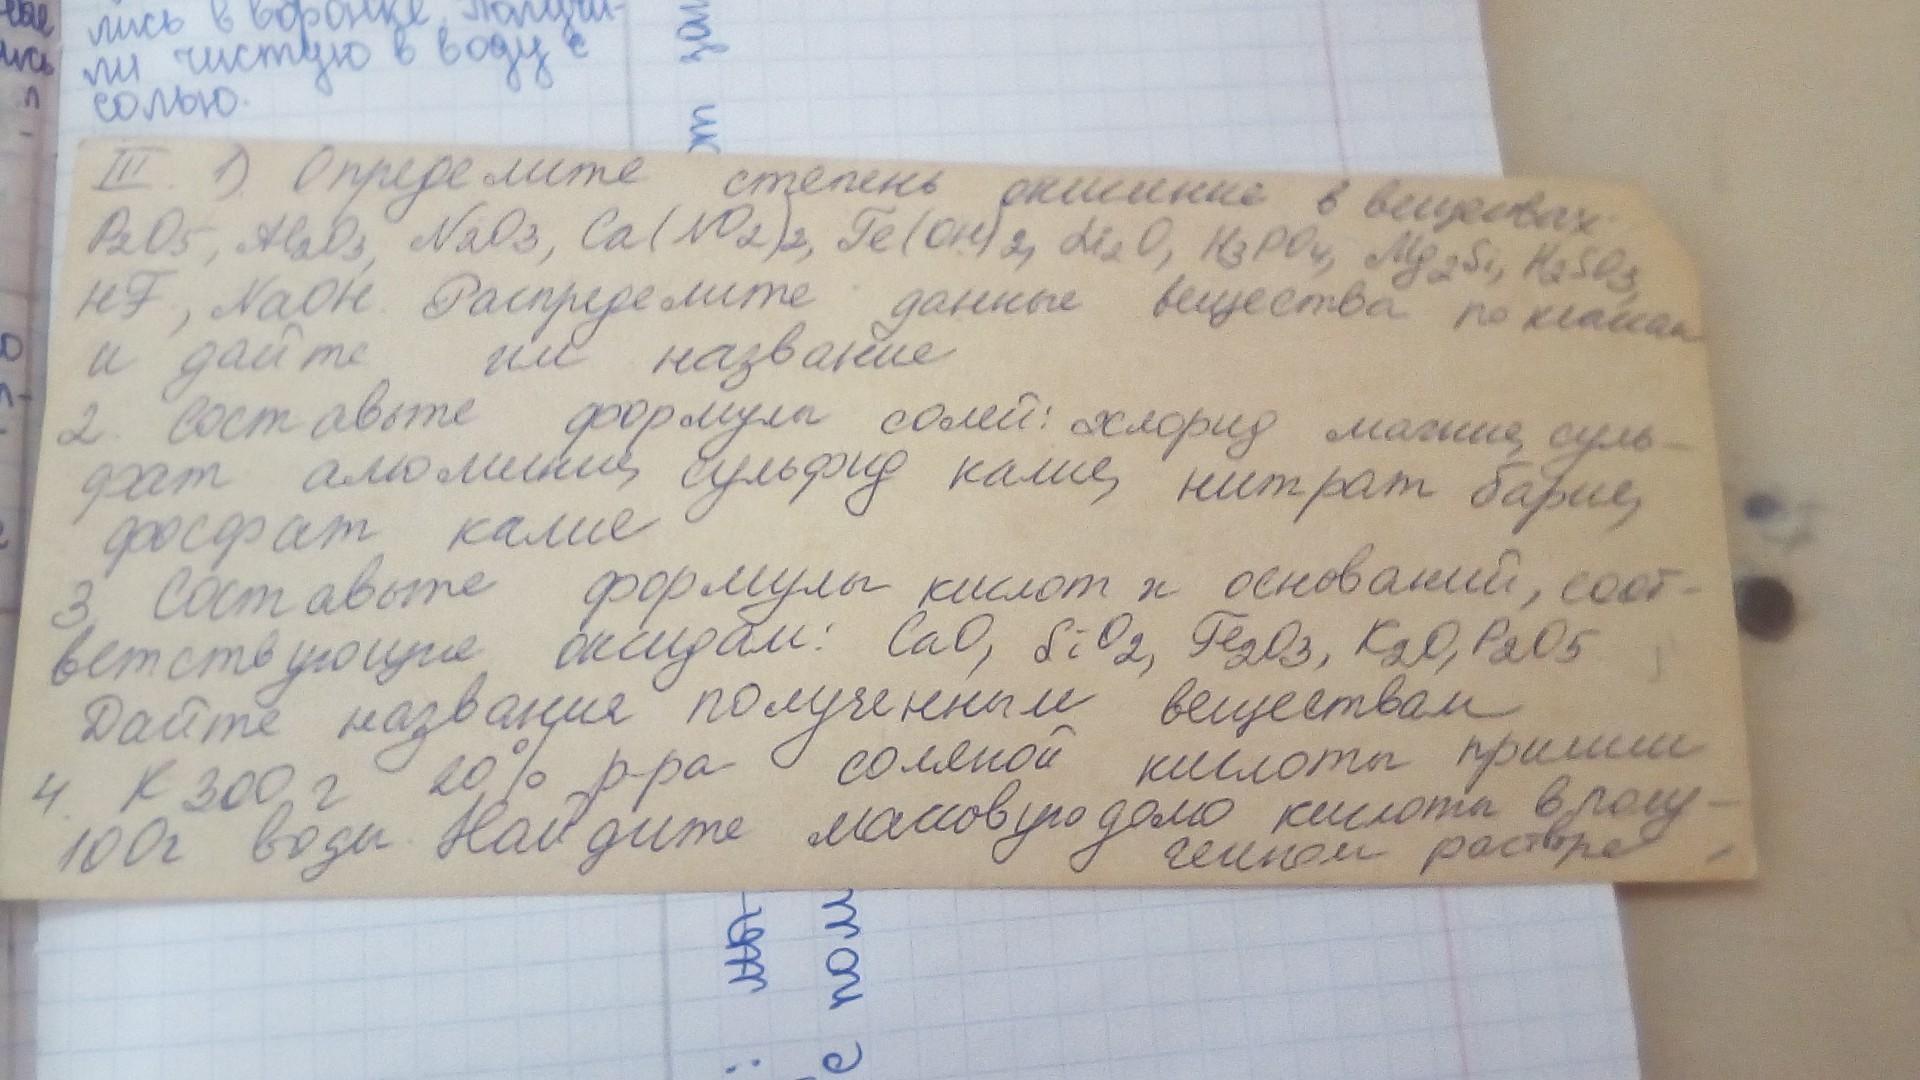 лись в воронке. Получи-
ли чистую в воду с
солью.
III. 1). Определите степень окисление в веществах:
P2O5, Al2O3, N2O3, Ca(NO2)2, Fe(OH)2, Li2O, H3PO4, Mg2Si, H2SO3,
HF, NaOH. Распределите данные вещества по классам
и дайте им название
2. Составьте формулы солей: хлорид магния, суль-
фат алюминия, сульфид калия, нитрат бария,
фосфат калия
3. Составьте формулы кислот и оснований, соот-
ветствующие оксидам: CaO, SiO2, Fe2O3, K2O, P2O5
Дайте названия полученным веществам
4. К 300 г 20% р-ра соляной кислоты прилили
100г воды. Найдите массовую долю кислоты в полу-
ченном растворе